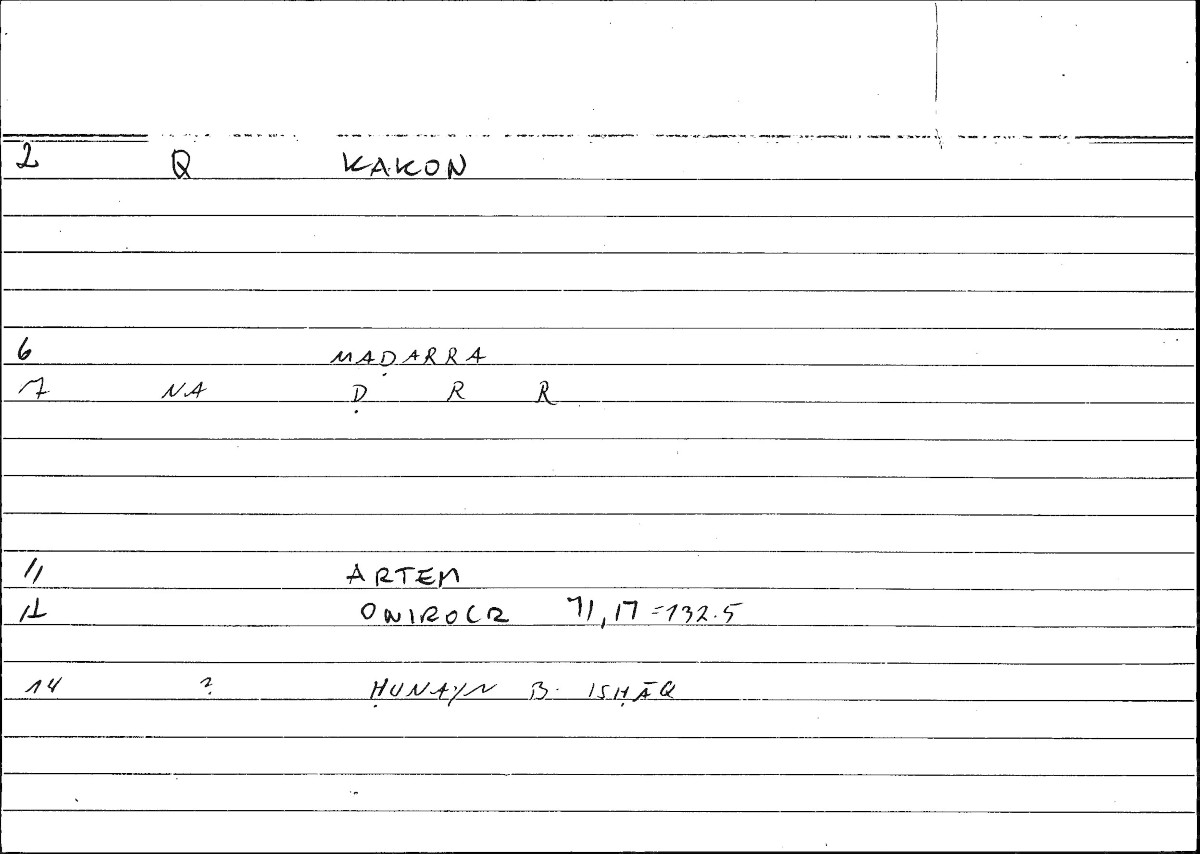 2 Q KAKON
6 MAḌARRA
7 NA Ḍ R R
11 ARTEM
12 ONIROCR 71,17=132.5
14 ? ḤUNAYN B. ISḤĀQ